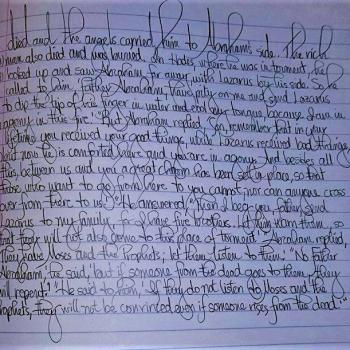 died and the angels carried him to Abraham's side. The rich
man also died and was buried. In Hades, where he was in torment, he
looked up and saw Abraham far away, with Lazarus by his side. So he
called to him, 'Father Abraham, have pity on me and send Lazarus
to dip the tip of his finger in water and cool my tongue, because I am in
agony in this fire.' But Abraham replied, 'Son, remember that in your
lifetime you received your good things, while Lazarus received bad things,
but now he is comforted here and you are in agony. And besides all
this, between us and you a great chasm has been set in place, so that
those who want to go from here to you cannot, nor can anyone cross
over from there to us.' He answered, 'Then I beg you, father, send
Lazarus to my family, for I have five brothers. Let him warn them, so
that they will not also come to this place of torment.' Abraham replied,
'They have Moses and the Prophets; let them listen to them.' 'No, father
Abraham,' he said, 'but if someone from the dead goes to them, they
will repent.' He said to him, 'If they do not listen to Moses and the
Prophets, they will not be convinced even if someone rises from the dead.'"